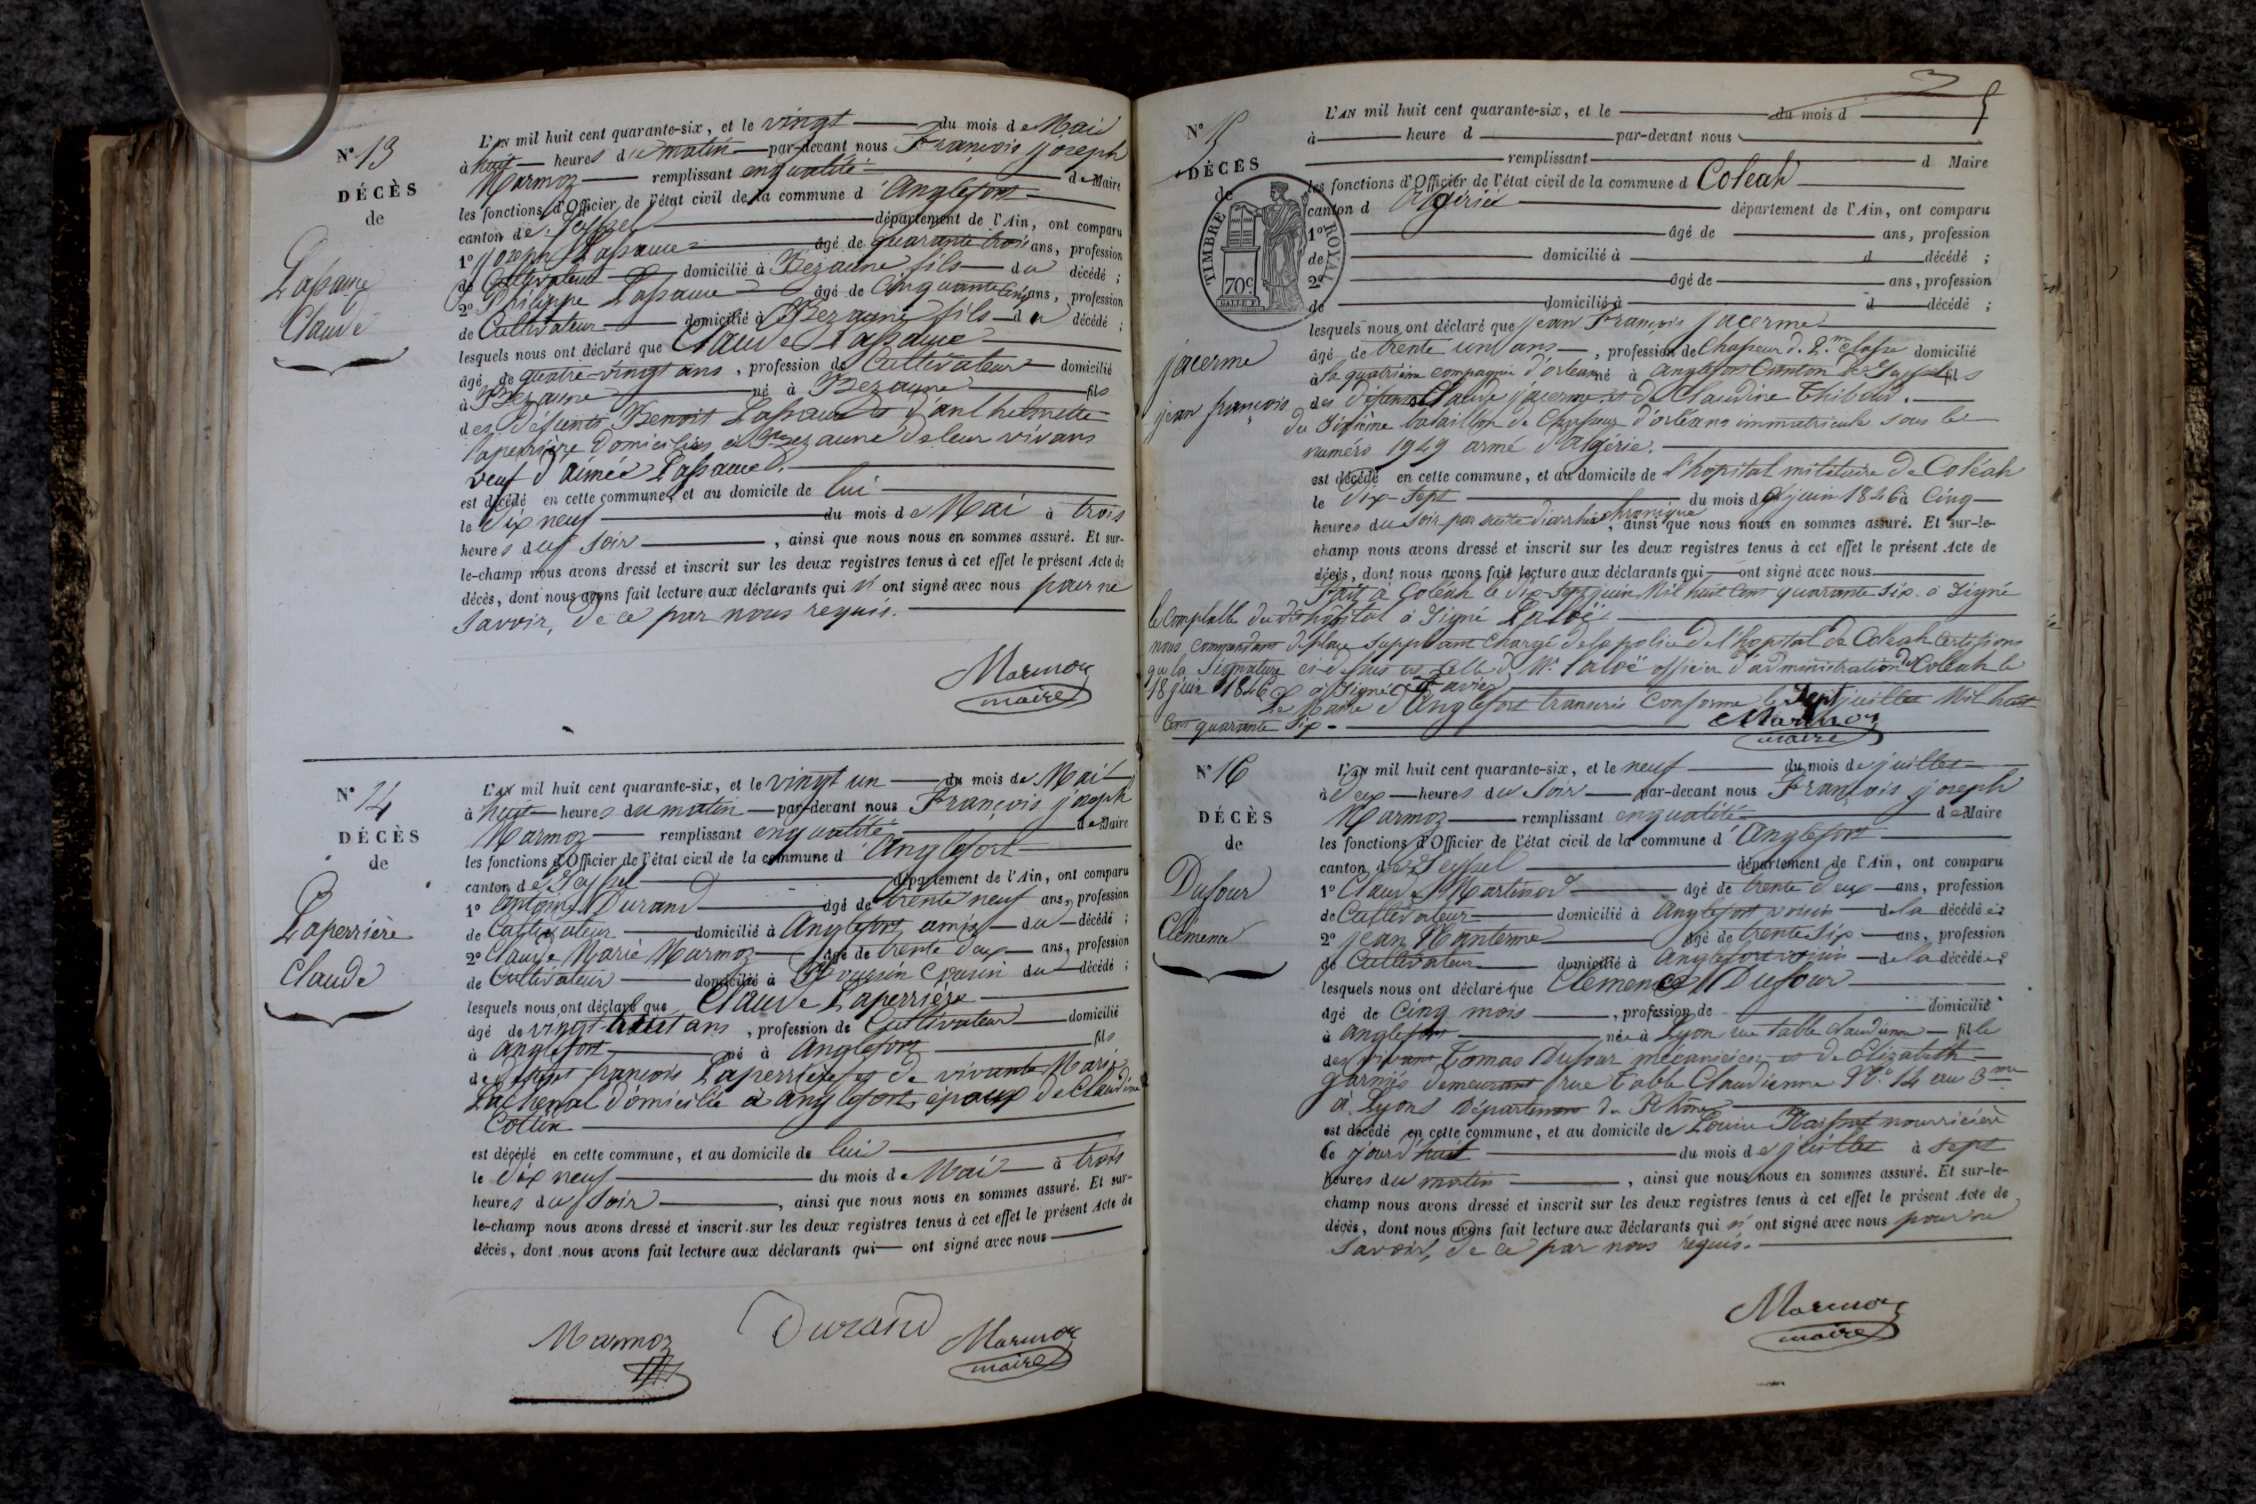 N° 13
DÉCÈS
de
Lapaure
Claude
L'AN mil huit cent quarante-six, et le vingt du mois de Mai
à huit heures du matin par-devant nous François joseph
Marmoz remplissant en qualité de Maire
les fonctions d'Officier de l'état civil de la commune d'Anglefort
canton de Seyssel département de l'Ain, ont comparu
1° joseph Lapaure âgé de quarante trois ans, profession
de Cultivateur domicilié à Bezaune fils du décédé ;
2° Philippe Lapaure âgé de Cinquante ans, profession
de Cultivateur domicilié à Bezaune fils du décédé ;
lesquels nous ont déclaré que Claude Lapaure
âgé de quatre-vingt ans, profession de Cultivateur domicilié
à Bezaune né à Bezaune fils
des défunts Benoit Lapaure et d'anthelmette
laperrière Domiciliés à Bezaune de leur vivans
veuf d'aimée Lapaure.
est décédé en cette commune, et au domicile de lui
le Dix neuf du mois de Mai à trois
heures du Soir, ainsi que nous nous en sommes assuré. Et sur-
le-champ nous avons dressé et inscrit sur les deux registres tenus à cet effet le présent Acte de
décès, dont nous avons fait lecture aux déclarants qui n'ont signé avec nous pour ne
Savoir, de ce par nous requis.
Marmoz
maire
N° 14
DÉCÈS
de
Laperrière
Claude
L'AN mil huit cent quarante-six, et le vingt un du mois de Mai
à huit heures du matin par-devant nous François joseph
Marmoz remplissant en qualité de Maire
les fonctions d'Officier de l'état civil de la commune d'Anglefort
canton de Seyssel département de l'Ain, ont comparu
1° antoine Durand âgé de trente neuf ans, profession
de Cultivateur domicilié à Anglefort amis du décédé ;
2° Claude Marie Marmoz âgé de trente Deux ans, profession
de Cultivateur domicilié à Cousin du décédé ;
lesquels nous ont déclaré que Claude Laperrière
âgé de vingt huit ans, profession de Cultivateur domicilié
à anglefort né à Anglefort fils
de françois Laperrière et de vivante Marie
Lachenal domicilié à anglefort, époux de Claudine
Cottin
est décédé en cette commune, et au domicile de lui
le dix neuf du mois de Mai à trois
heures du Soir, ainsi que nous nous en sommes assuré. Et sur-
le-champ nous avons dressé et inscrit sur les deux registres tenus à cet effet le présent Acte de
décès, dont nous avons fait lecture aux déclarants qui ont signé avec nous
Marmoz Durand Marmoz
maire
5
N° 15
DÉCÈS
de
TIMBRE ROYAL
70c
jacerme
jean françois
L'AN mil huit cent quarante-six, et le du mois d
à heure d par-devant nous
remplissant d Maire
les fonctions d'Officier de l'état civil de la commune d Coleah
canton d algérie département de l'Ain, ont comparu
1° âgé de ans, profession
de domicilié à d décédé ;
2° âgé de ans, profession
de domicilié à d décédé ;
lesquels nous ont déclaré que jean François jacerme
âgé de trente un ans, profession de Chasseur d. 2.me Classe domicilié
à la quatrième compagnie d'orleans né à anglefort Canton de Seyssel fils
des défunts Claude jacerme et de Claudine Thiboud.
du Sixième bataillon de Chasseurs d'orléans immatricule sous le
numéro 1949 armé d'algérie.
est décédé en cette commune, et au domicile de l'hopital militaire de Coléah
le Dix-Sept du mois de juin 1846 à Cinq
heures du Soir par suite diarrhée chronique, ainsi que nous nous en sommes assuré. Et sur-le-
champ nous avons dressé et inscrit sur les deux registres tenus à cet effet le présent Acte de
décès, dont nous avons fait lecture aux déclarants qui ont signé avec nous
Fait à Coléah le Dix-Sept juin Mil huit Cent quarante Six. a Signé
le Comptable du dit hôpital a Signé Laloë
nous Commandant de place Suppléant Chargé de la police de l'hopital de Coleah Certifions
que la Signature ci-dessus est celle de Mr Laloë officier d'administration Coleah le
18 juin 1846 a Signé
Le Maire d'Anglefort transcris Conforme le Sept juillet Mil huit
Cent quarante Six.
Marmoz
maire
N° 16
DÉCÈS
de
Dufour
Clémence
L'AN mil huit cent quarante-six, et le neuf du mois de juillet
à Deux heures du Soir par-devant nous François joseph
Marmoz remplissant en qualité de Maire
les fonctions d'Officier de l'état civil de la commune d'Anglefort
canton de Seyssel département de l'Ain, ont comparu
1° Claude Martinod âgé de trente Deux ans, profession
de Cultivateur domicilié à Anglefort voisin de la décédée ;
2° jean Manterme âgé de trente Six ans, profession
de Cultivateur domicilié à Anglefort voisin de la décédée ;
lesquels nous ont déclaré que Clemence Dufour
âgé de Cinq mois, profession de domicilié
à anglefort née à Lyon rue table claudienne fille
des vivans Tomas Dufour mécanicien et de Elizabeth
garnié demeurant rue table Claudienne N.o 14 au 3me
à Lyons Département du Rhône
est décédé en cette commune, et au domicile de Louise nourricière
le jour d'huit du mois de juillet à Sept
heures du matin, ainsi que nous nous en sommes assuré. Et sur-le-
champ nous avons dressé et inscrit sur les deux registres tenus à cet effet le présent Acte de
décès, dont nous avons fait lecture aux déclarants qui n'ont signé avec nous pour ne
Savoir, de ce par nous requis.
Marmoz
maire